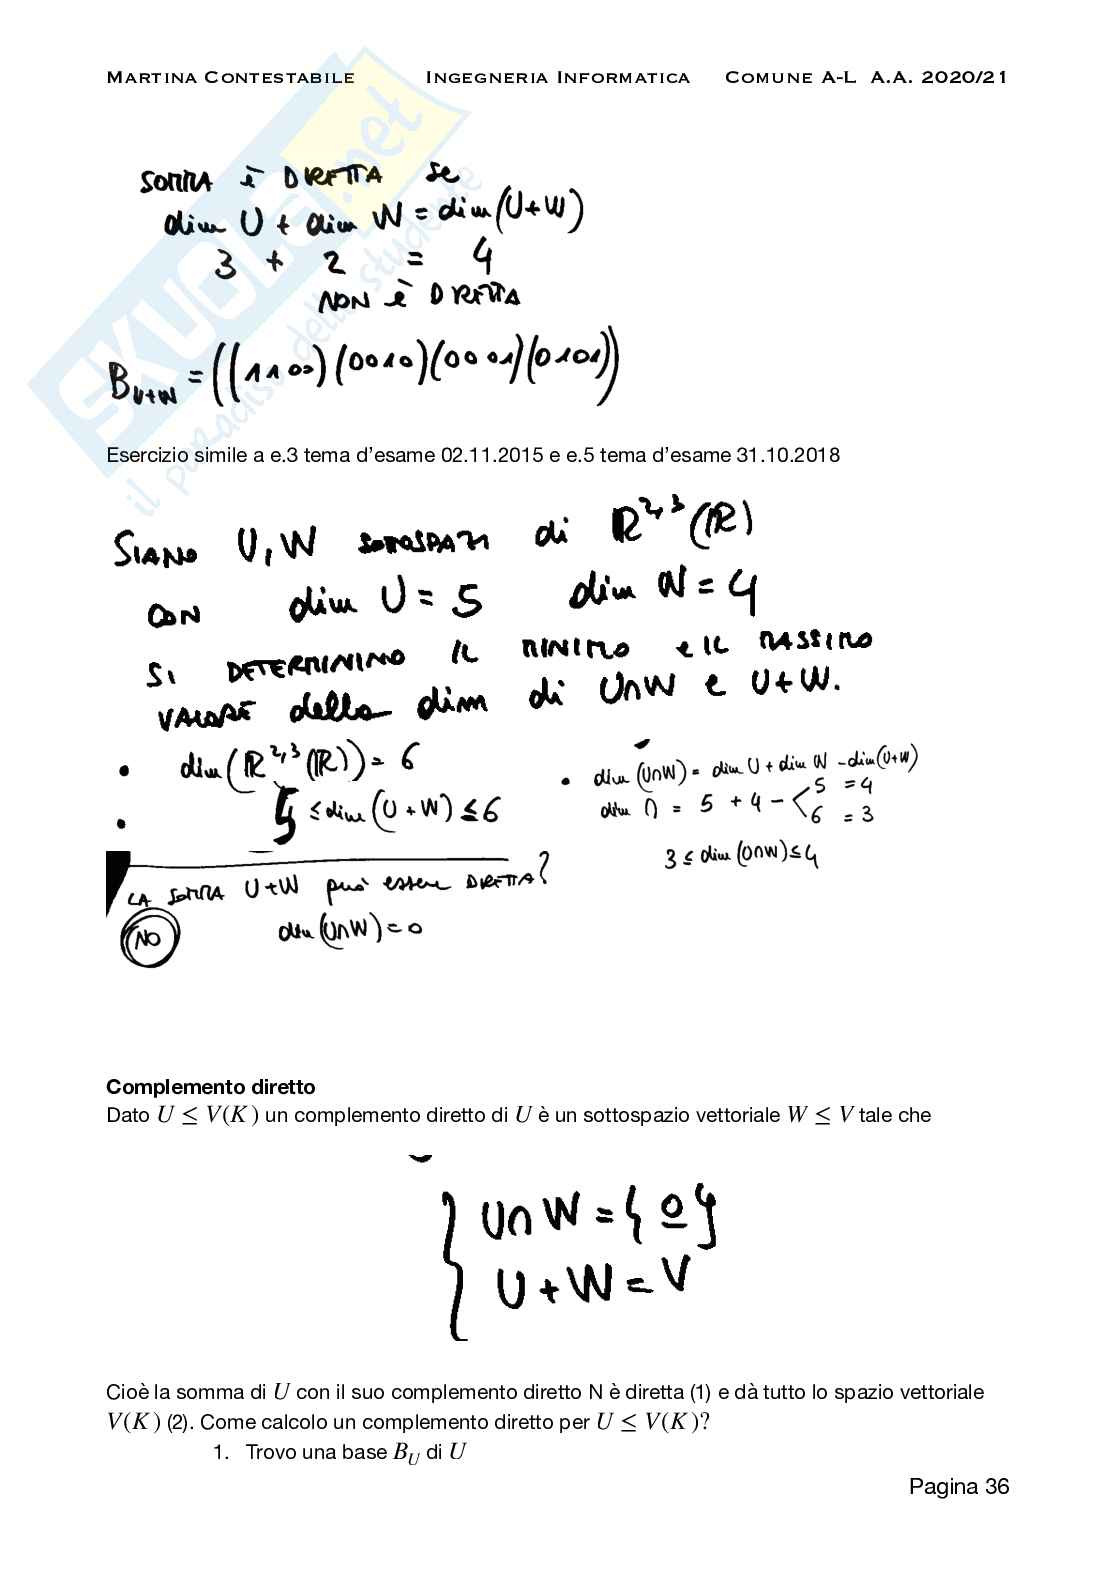 MARTINA CONTESTABILE INGEGNERIA INFORMATICA COMUNE A-L A.A. 2020/21
SKUOLA.net
il paradiso dello studente
SOMMA È DIRETTA se
dim U + dim W = dim(U+W)
3 + 2 = 4
NON è DIRETTA
B_{U+W} = ((1100)(0010)(0001)(0101))
Esercizio simile a e.3 tema d'esame 02.11.2015 e e.5 tema d'esame 31.10.2018
SIANO U, W SOTTOSPAZI di ℝ^{2,3}(ℝ)
CON dim U = 5 dim W = 4
SI DETERMININO IL MINIMO e IL MASSIMO
VALORE della dim di U∩W e U+W.
• dim(ℝ^{2,3}(ℝ)) = 6
• 5 ≤ dim(U+W) ≤ 6
• dim(U∩W) = dim U + dim W - dim(U+W)
dim ∩ = 5 + 4 - < 5 = 4
6 = 3
3 ≤ dim(U∩W) ≤ 4
LA SOMMA U+W può essere DIRETTA?
NO dim(U∩W) = 0
Complemento diretto
Dato U ≤ V(K) un complemento diretto di U è un sottospazio vettoriale W ≤ V tale che
{ U∩W = {0}
U+W = V
Cioè la somma di U con il suo complemento diretto N è diretta (1) e dà tutto lo spazio vettoriale
V(K) (2). Come calcolo un complemento diretto per U ≤ V(K)?
1. Trovo una base B_U di U
Pagina 36